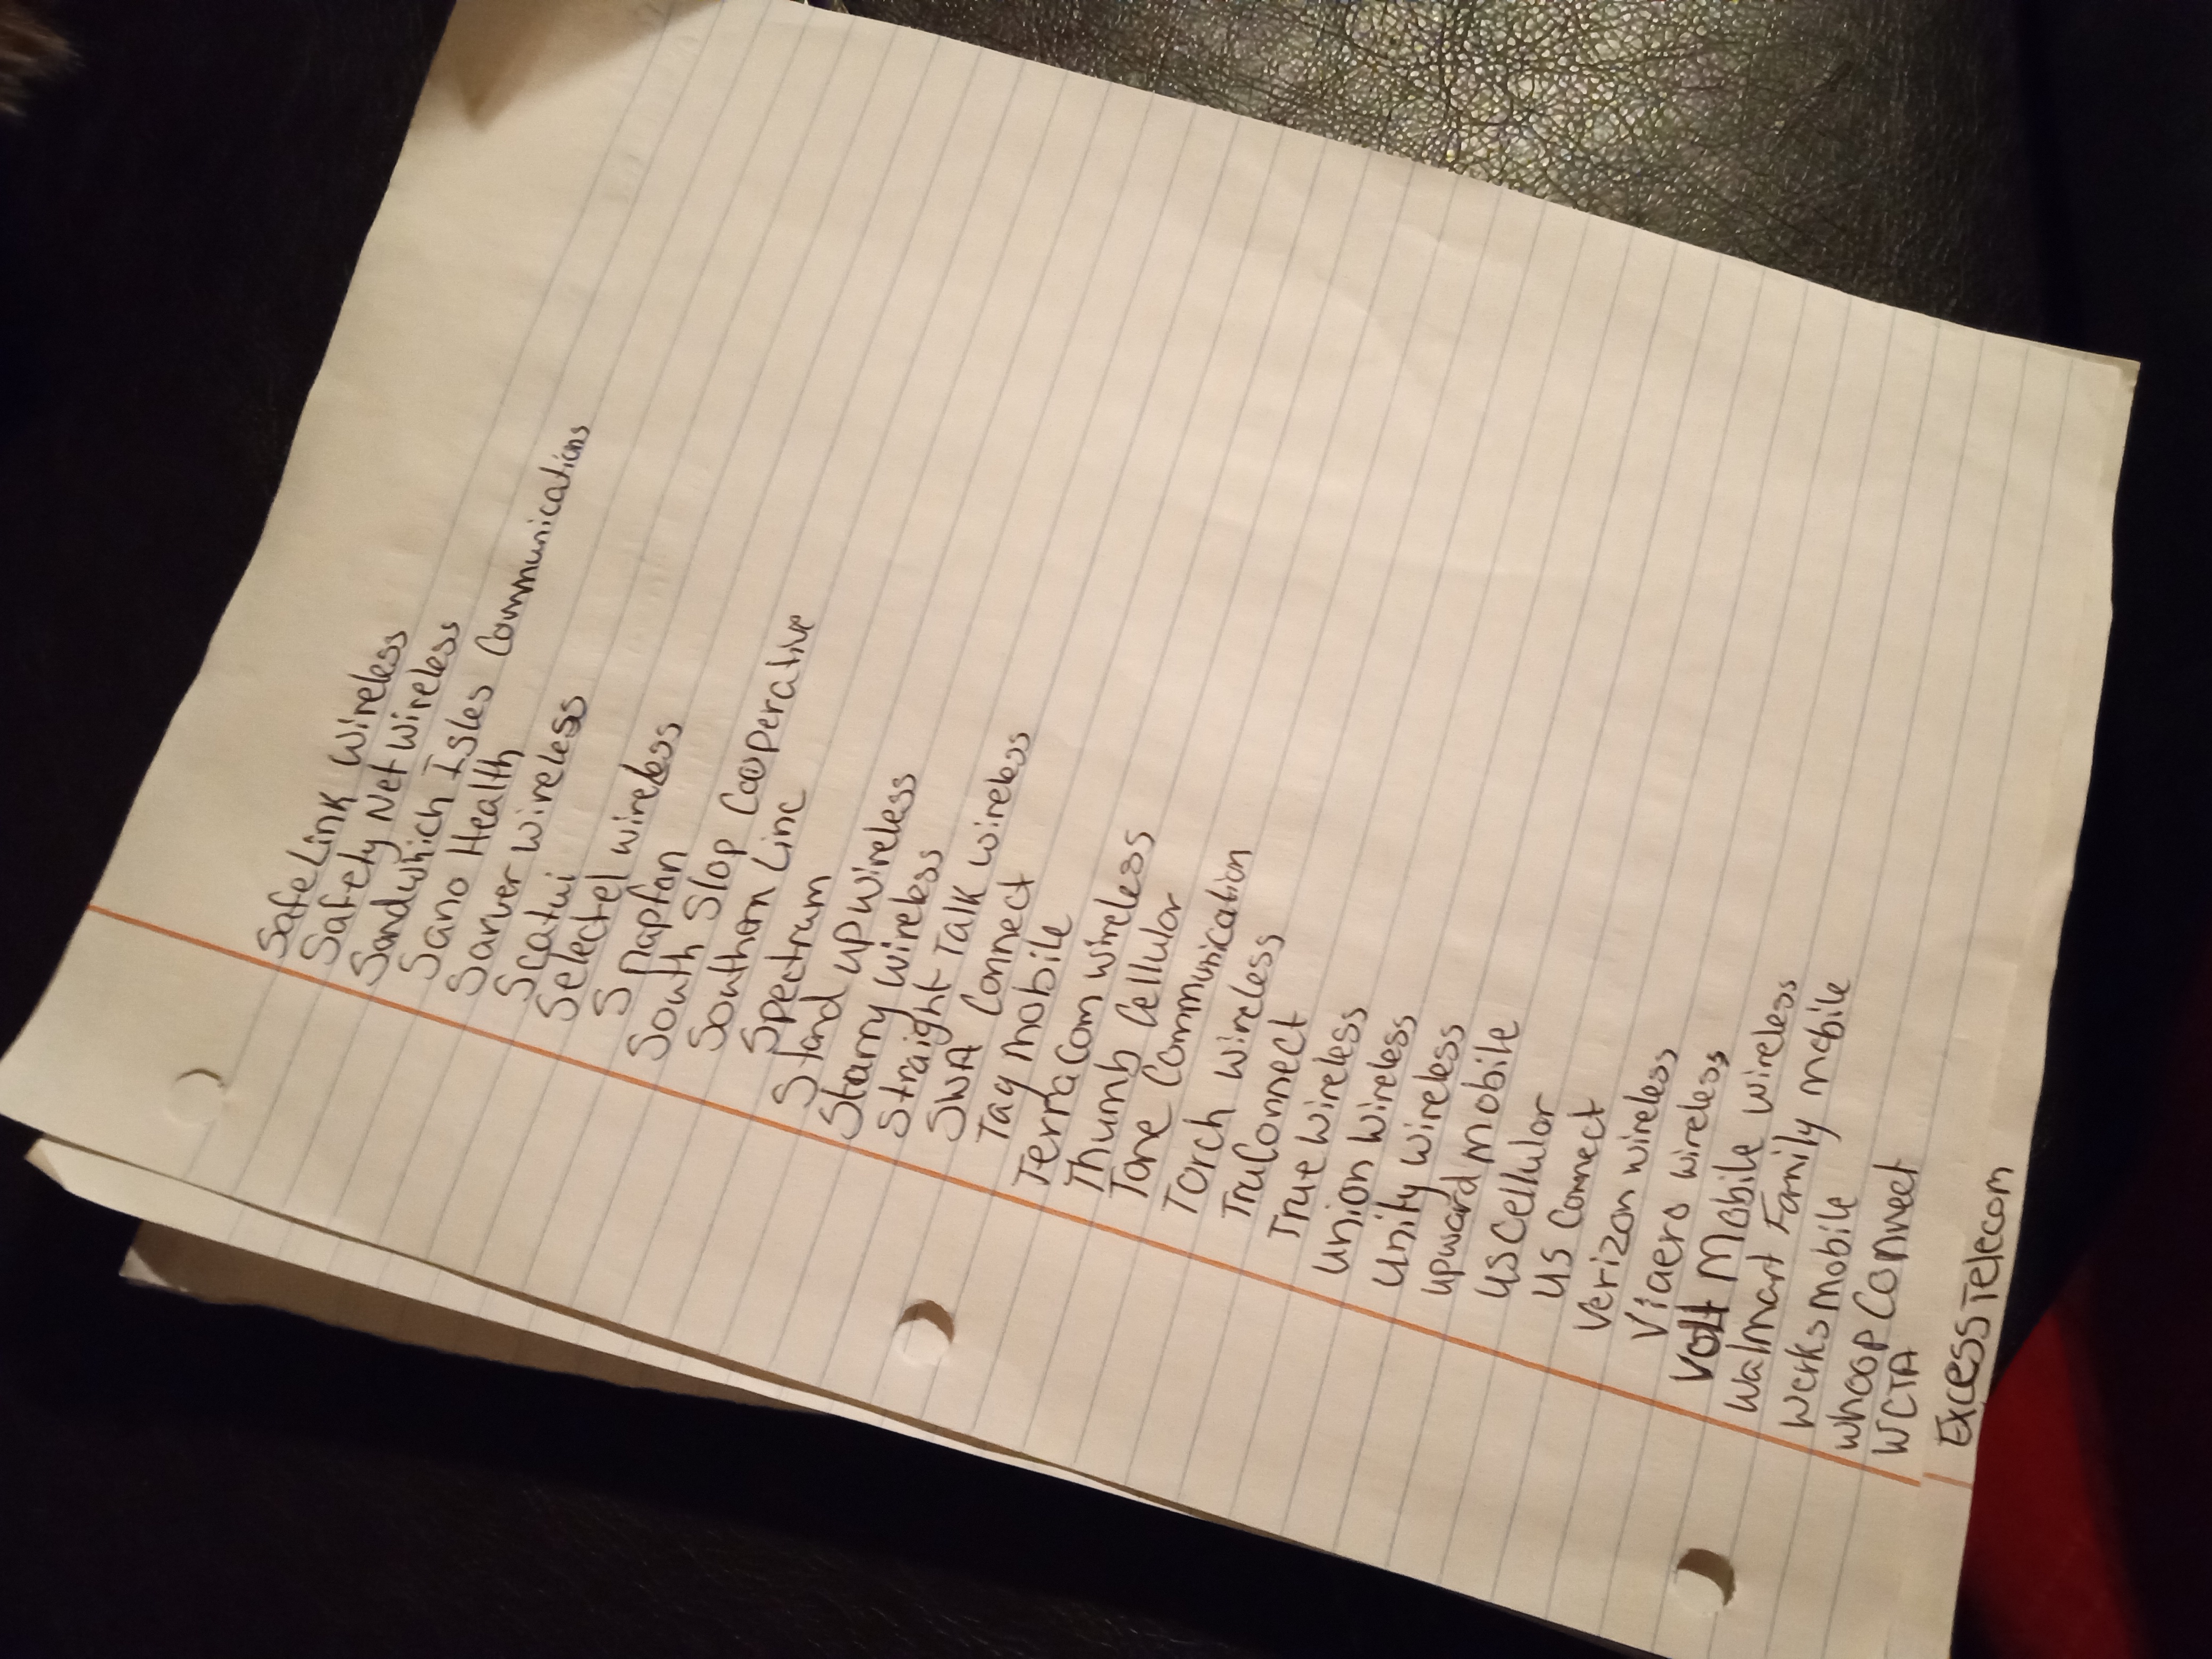 SafeLink Wireless
Safety Net Wireless
Sandwhich Isles Communications
Sano Health
Sarver Wireless
Scatui
Selectel Wireless
Snapfon
South Slop Cooperative
Southern Linc
Spectrum
Stand up Wireless
Starry Wireless
Straight Talk Wireless
SWA Connect
Tag Mobile
Terracom Wireless
Thumb Cellular
Tone Communication
Torch Wireless
TruConnect
True Wireless
Union Wireless
Unity Wireless
upward Mobile
US Cellular
US Connect
Verizon Wireless
Viaero Wireless
Volt Mobile Wireless
Walmart Family Mobile
Werks Mobile
Whoop Connect
WCTA
Excess Telecom